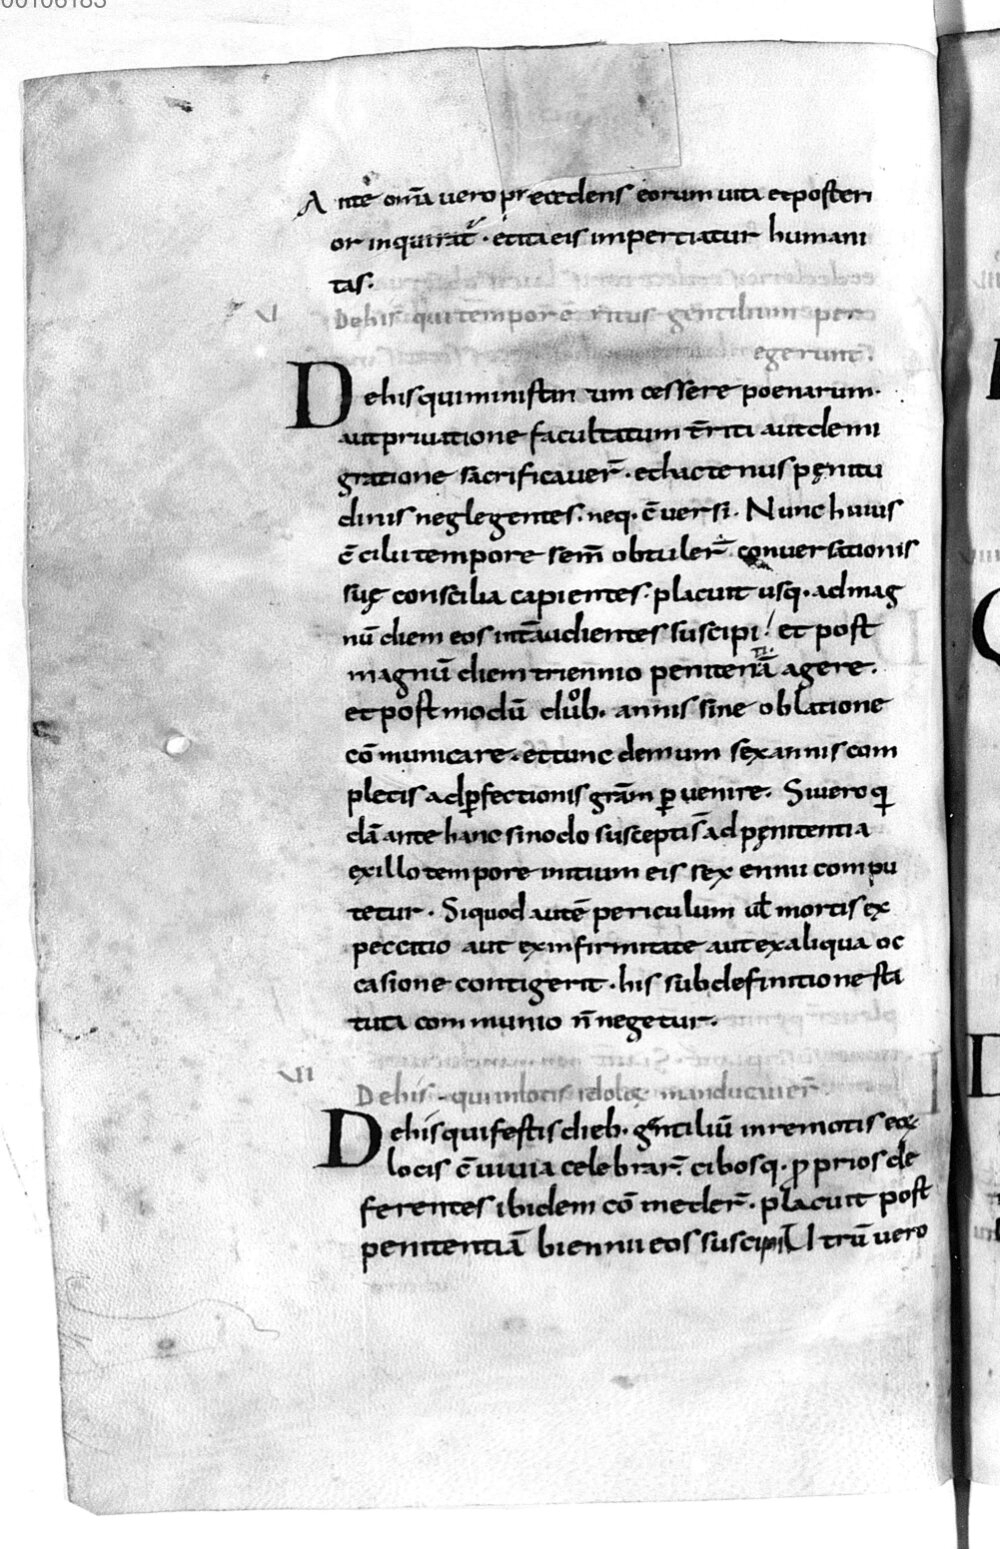 Ante om̄a vero precedens eorum uita et posteri
or inquirat̄ · et ita eis impertiatur humani
tas·
VI De his qui tempore ritus gentilium per
egerunt·
De his qui ministan tum cessere poenarum·
aut priuatione facultatum t̄riti aut demi
gratione sacrificauer̄ · et hactenus pęnitu
dinis neglegentes · neq· c̄uersi · Nunc huius
c̄cilii tempore sem̄ obtuler̄ conuersationis
suę conscilia capientes · placuit usq· ad mag
nū diem eos int̄ audientes suscipi et post
magnū diem triennio penitentiā agere·
et postmodū duob· annis sine oblatione
cōmunicare · et tunc demum sex annis com
pletis ad ꝑfectionis grām ꝑuenire · Si uero qi
dā ante hanc sinodo suscepti s̄ ad pęnitentia
ex illo tempore initium eis sex ennii compu
tetur · Si quod autē periculum ul̄ mortis ex
pectatio aut ex infirmitate aut ex aliqua oc
casione contigerit · his sub definitione sta
tuta communio n̄ negetur·
VII De his · qui in locis idoloꝝ manducauer̄
De his qui festis dieb· gentiliū in remotis eoꝝ
locis c̄uiuia celebrar̄ · cibosq· ꝓprios de
ferentes ibidem cōmeder̄ · placuit post
penitentiā biennii eos suscipi Utrū uero